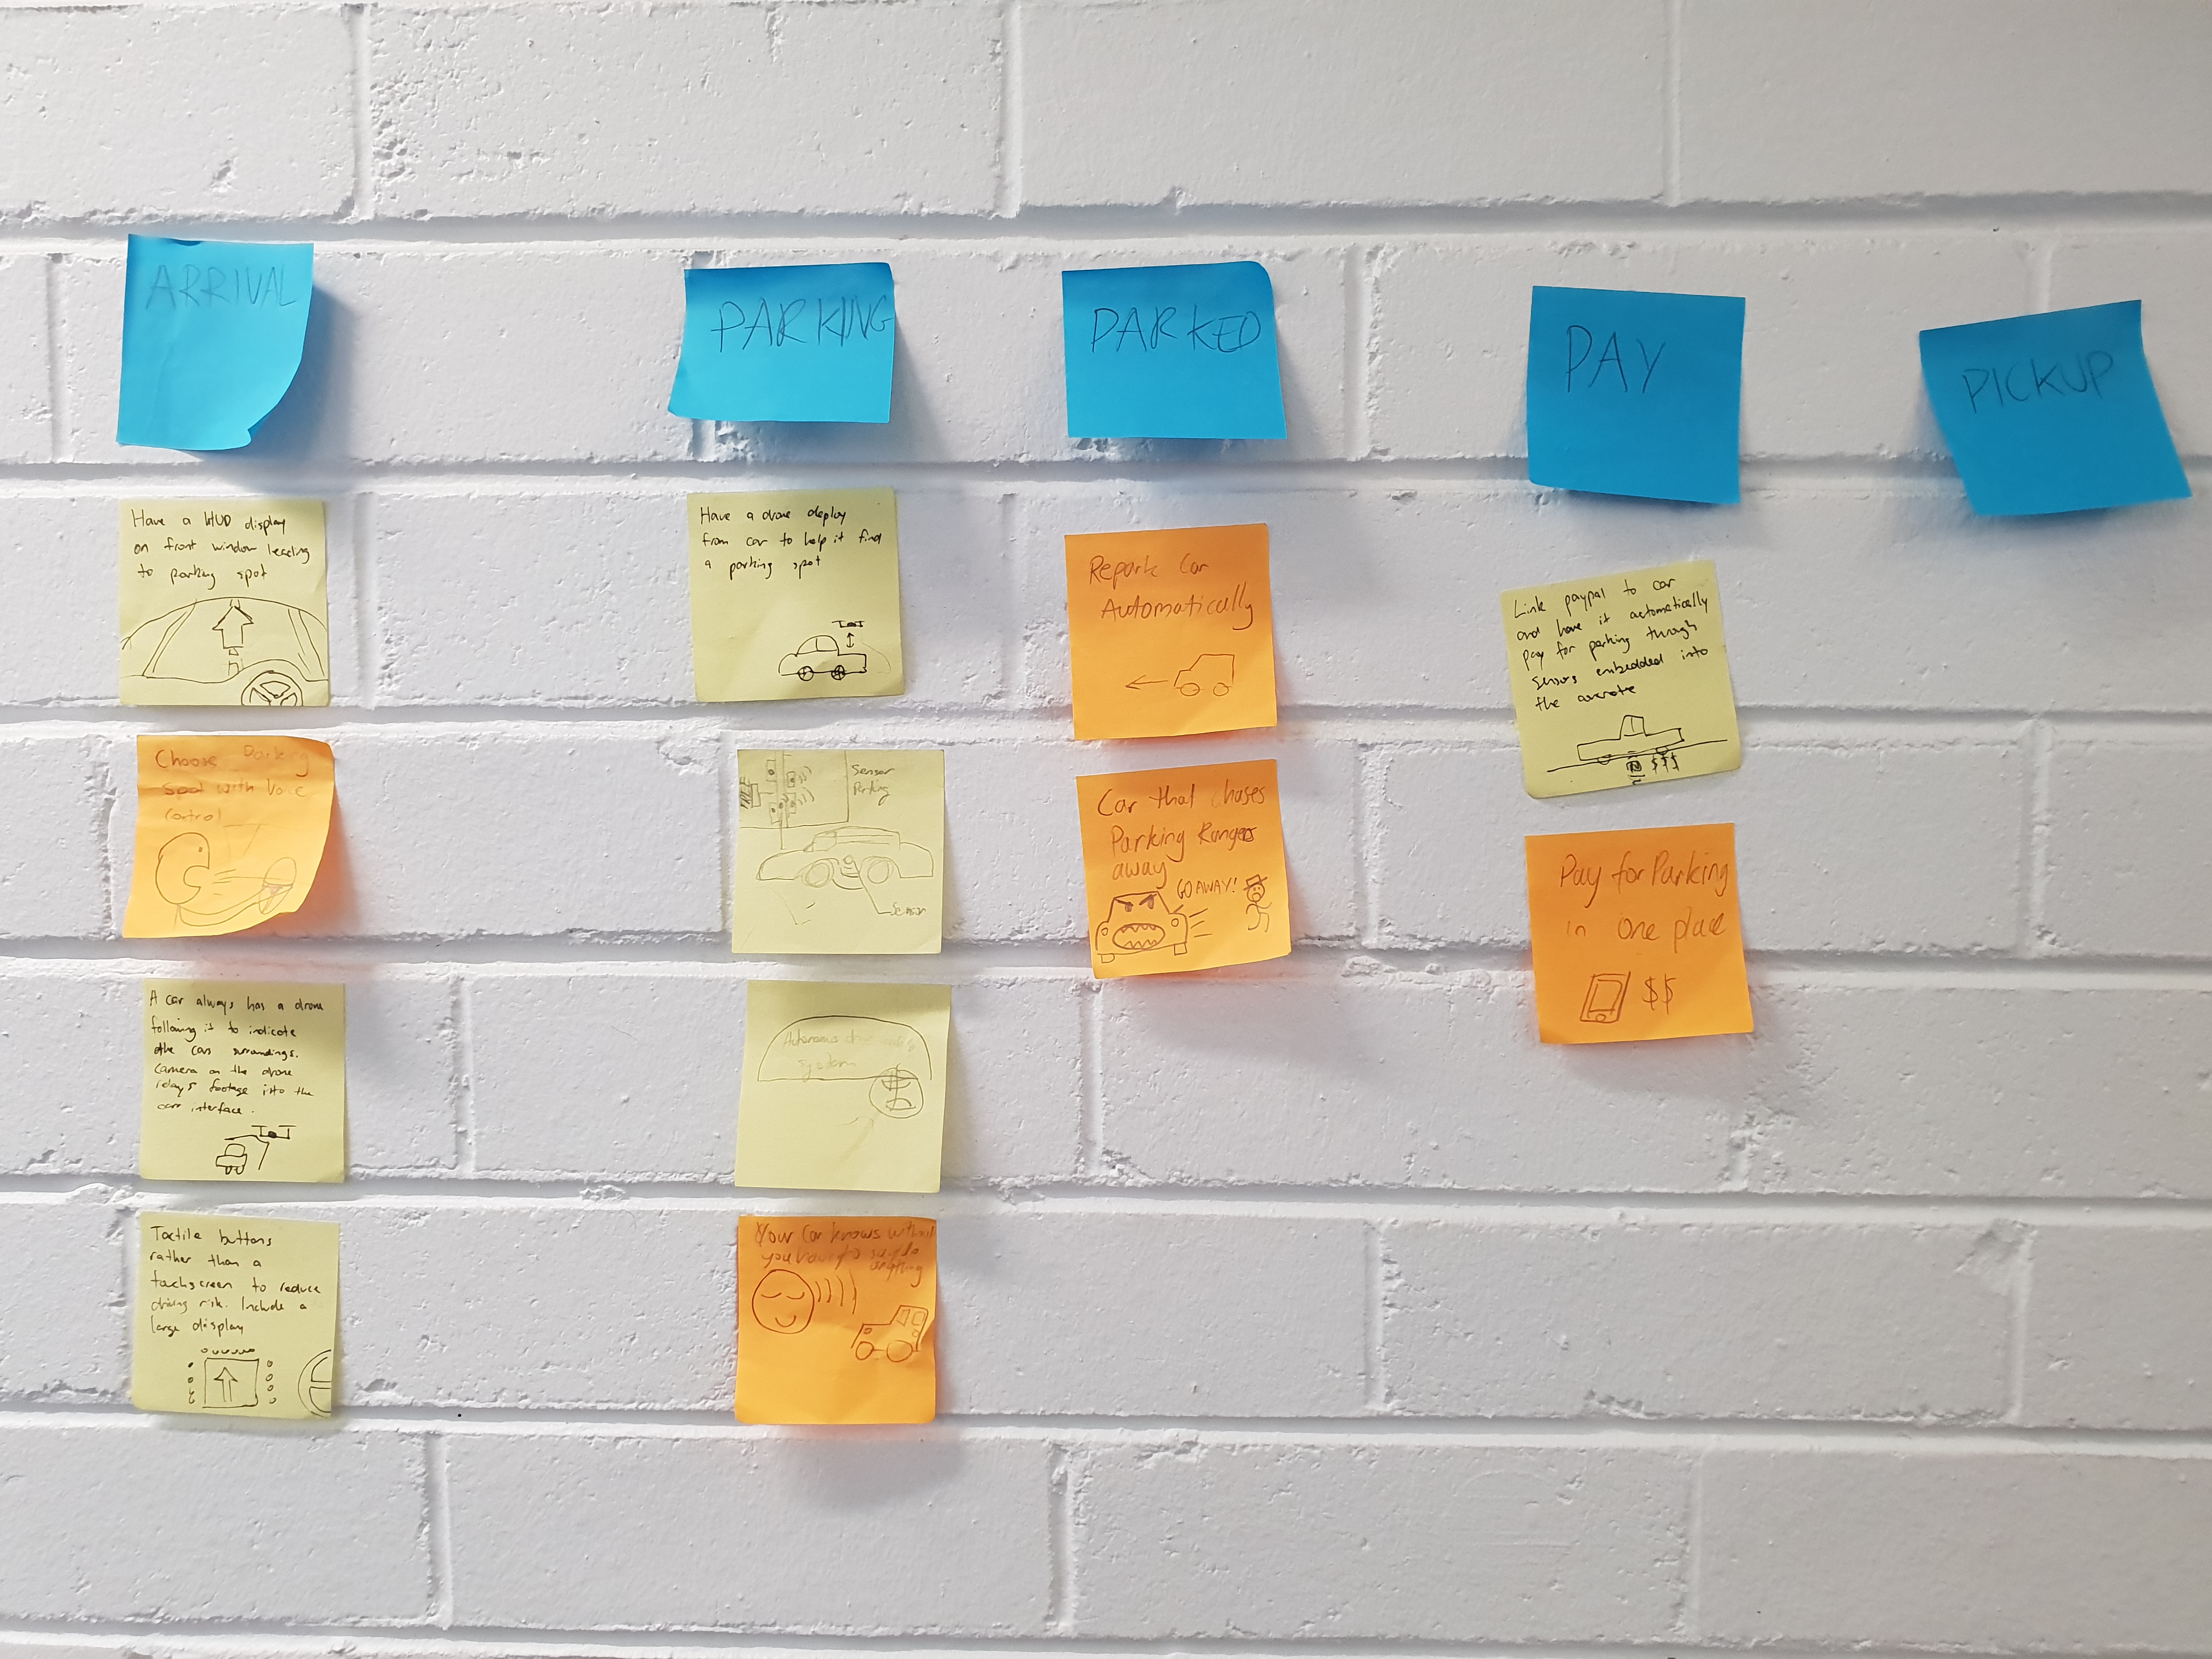 ARRIVAL
PARKING
PARKED
PAY
PICKUP
Have a HUD display
on front window leading
to parking spot
Choose Parking
Spot with Voice
Control
A car always has a drone
following it to indicate
the cars surroundings.
Camera on the drone
relays footage into the
cars interface.
Tactile buttons
rather than a
touchscreen to reduce
driving risk. Include a
large display
Have a drone deploy
from car to help it find
a parking spot
Sensor
Parking
Sensor
Autonomous
system
Your Car knows without
you having to say/do
anything
Repark Car
Automatically
Car that chases
Parking Rangers
away
GO AWAY!
Link paypal to car
and have it automatically
pay for parking through
sensors embedded into
the concrete
$$$
Pay for Parking
in one place
$$